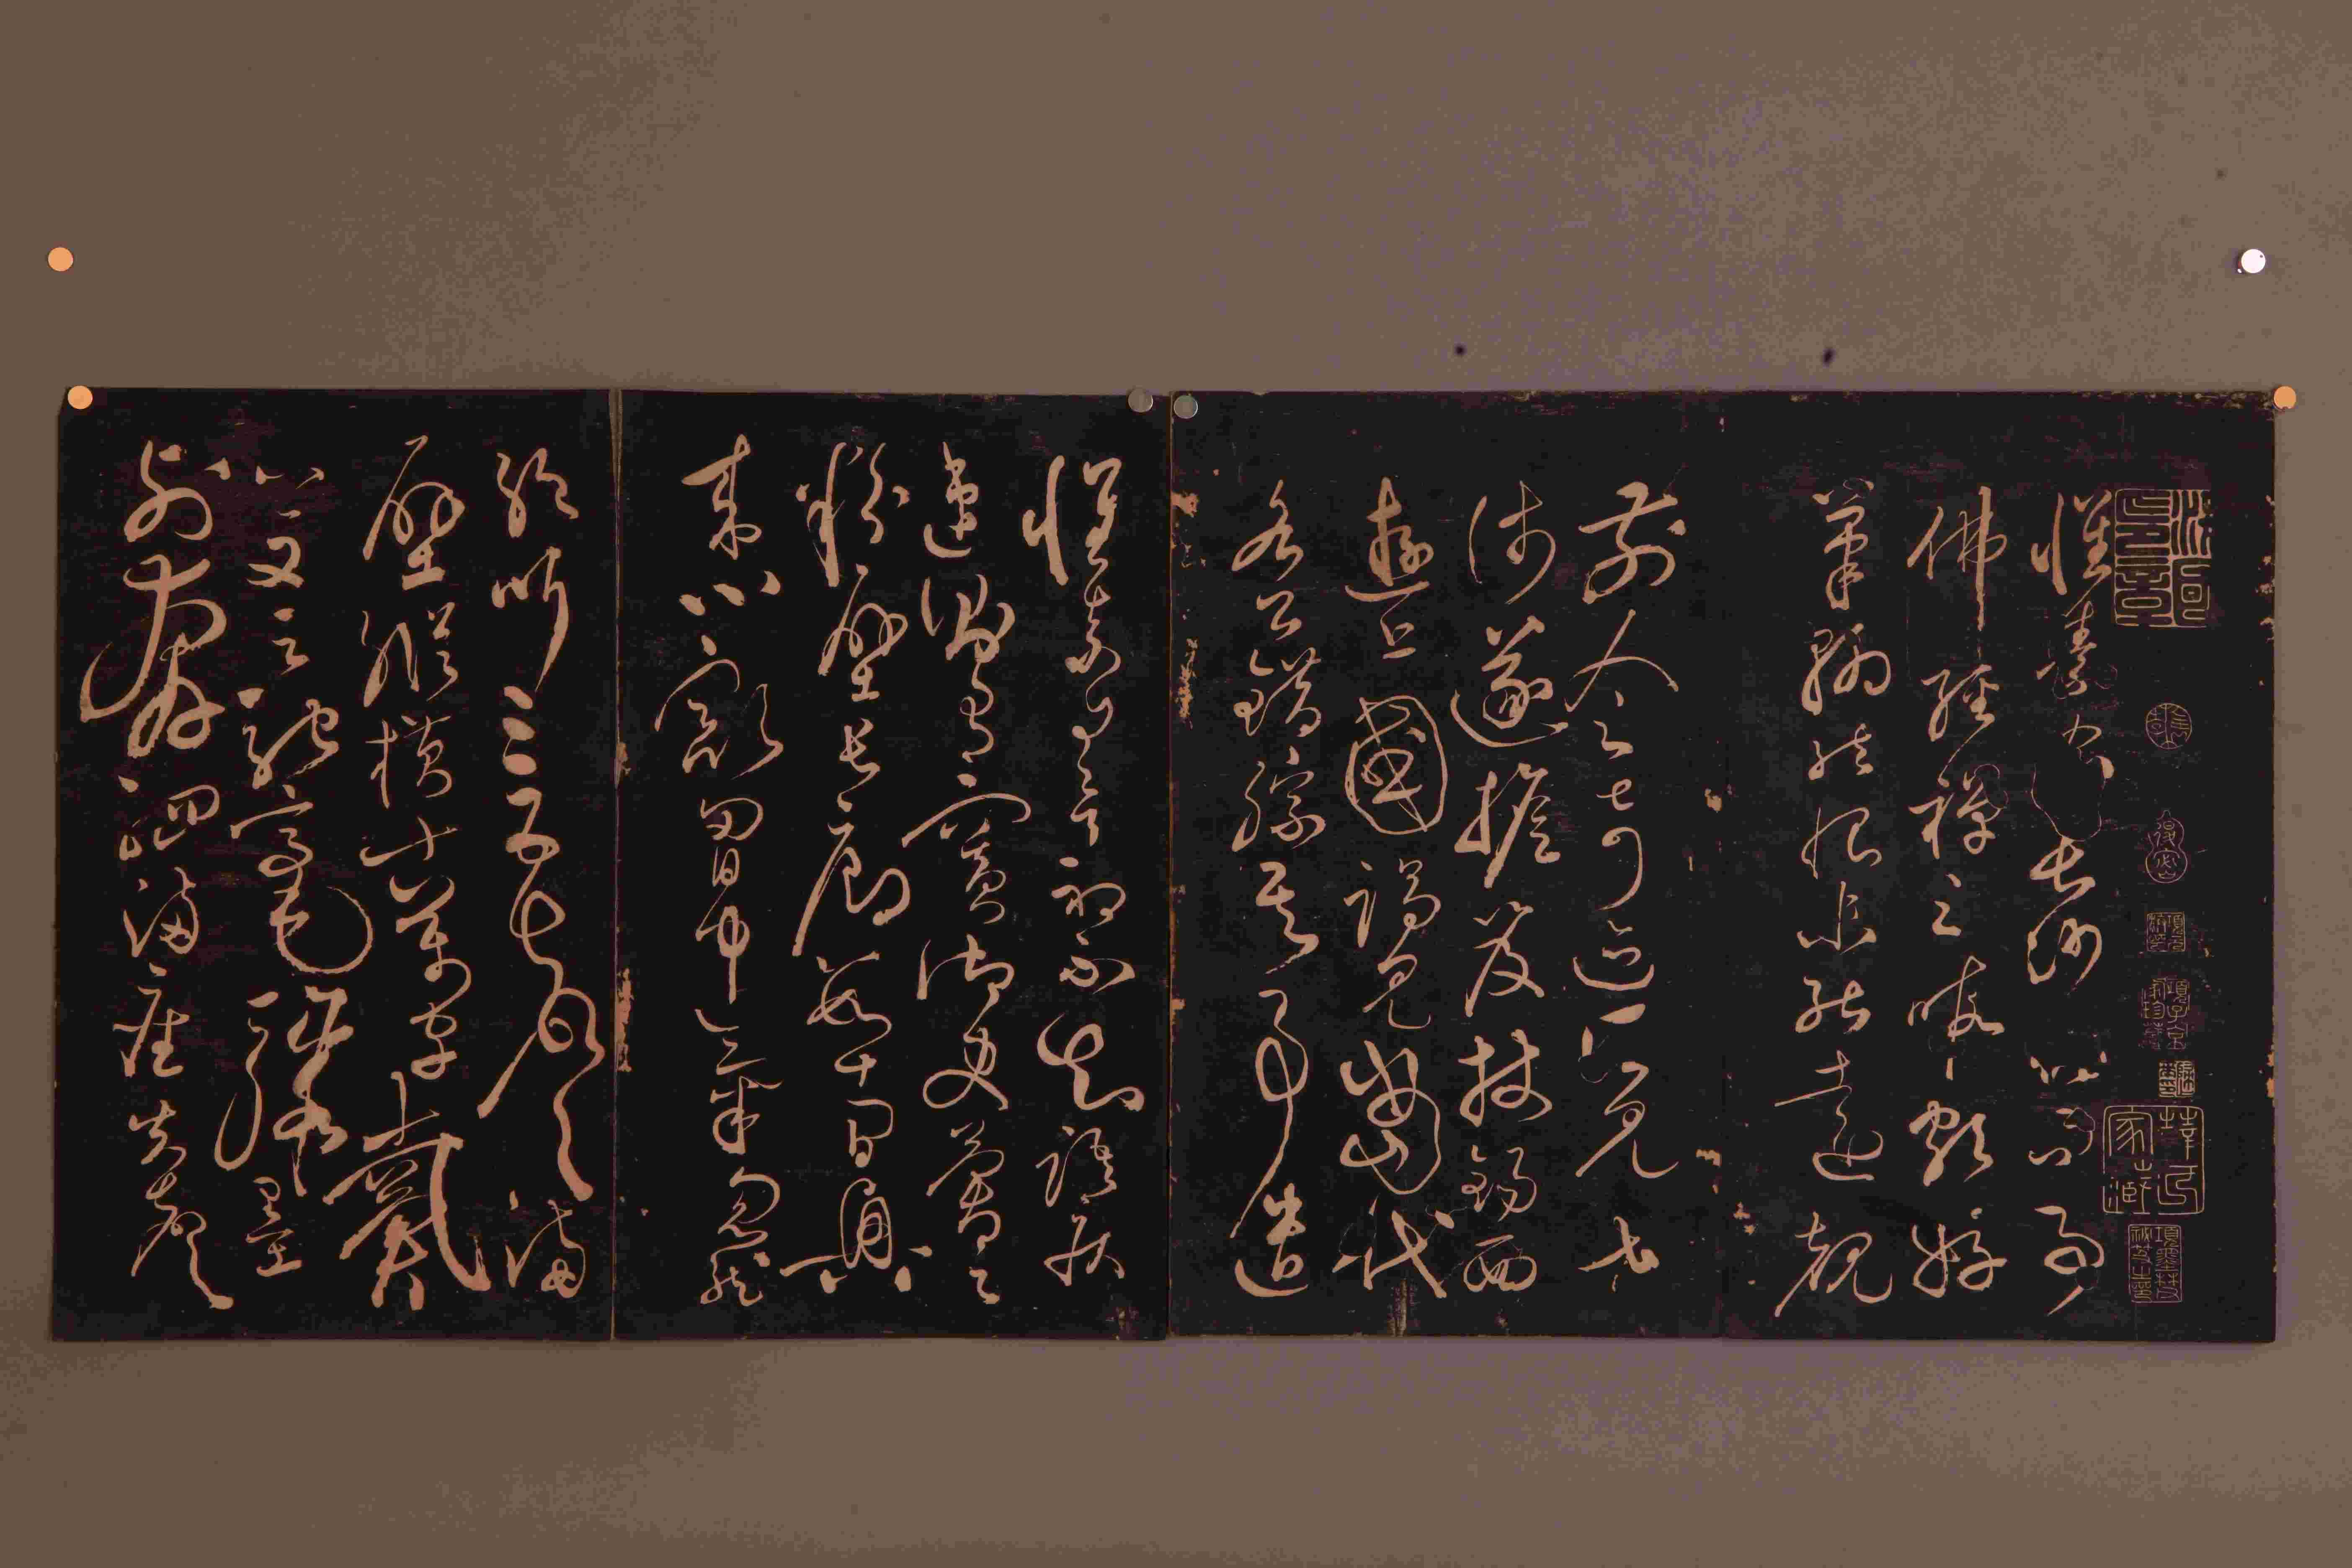 懷素家長沙幼而事
佛經禪之暇頗好
筆翰然恨未能遠覩
前人之奇迹所見甚
淺遂擔笈杖錫西
遊上國謁見當代
名公錯綜其事遺
懷素自言初不知語疾
迅則有竇御史冀云
粉壁長廊數十間興
來小豁胸中氣忽然
絕叫三五聲滿
壁縱橫千萬字戴
公又云馳毫驟墨
列奔駟滿座失聲